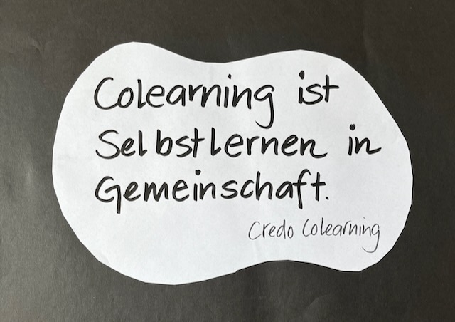 Colearning ist
Selbstlernen in
Gemeinschaft.
Credo Colearning